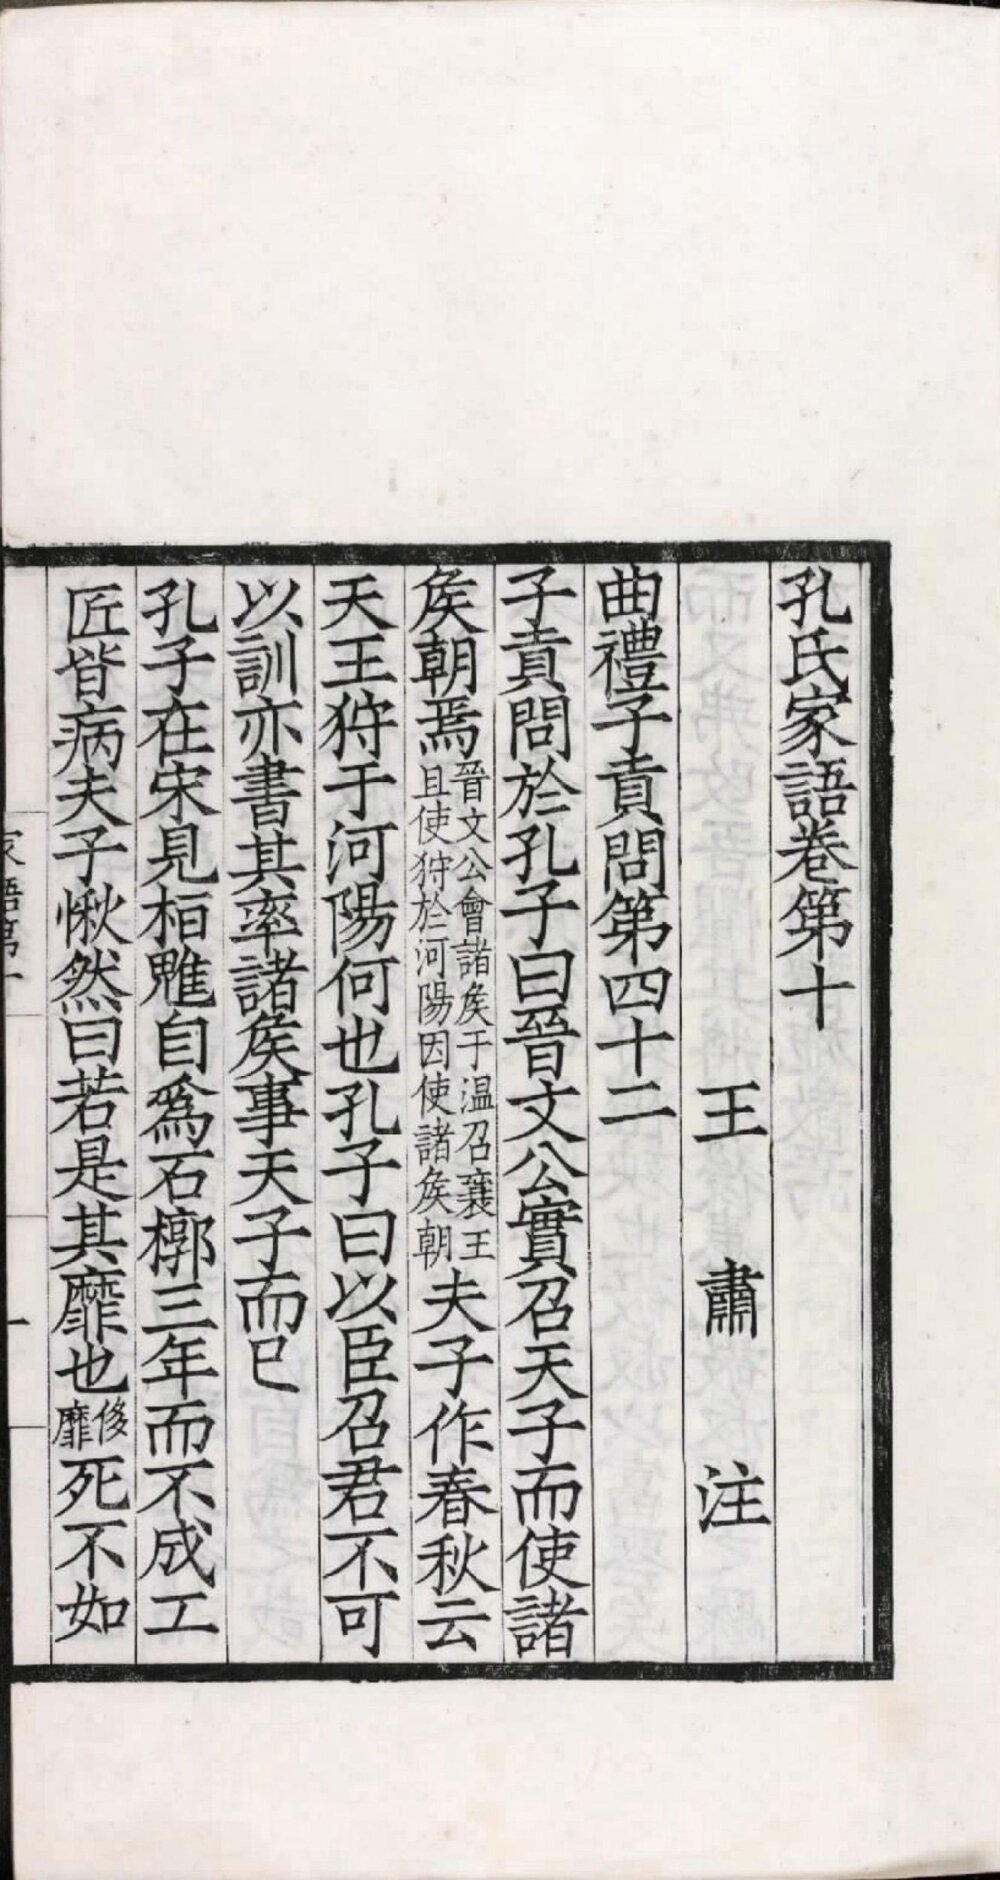 孔氏家語卷第十
王肅注
曲禮子貢問第四十二
子貢問於孔子曰晉文公實召天子而使諸
矦朝焉晉文公會諸矦于溫召襄王且使狩於河陽因使諸矦朝夫子作春秋云
天王狩于河陽何也孔子曰以臣召君不可
以訓亦書其率諸矦事天子而已
孔子在宋見桓魋自爲石槨三年而不成工
匠皆病夫子愀然曰若是其靡也侈靡死不如